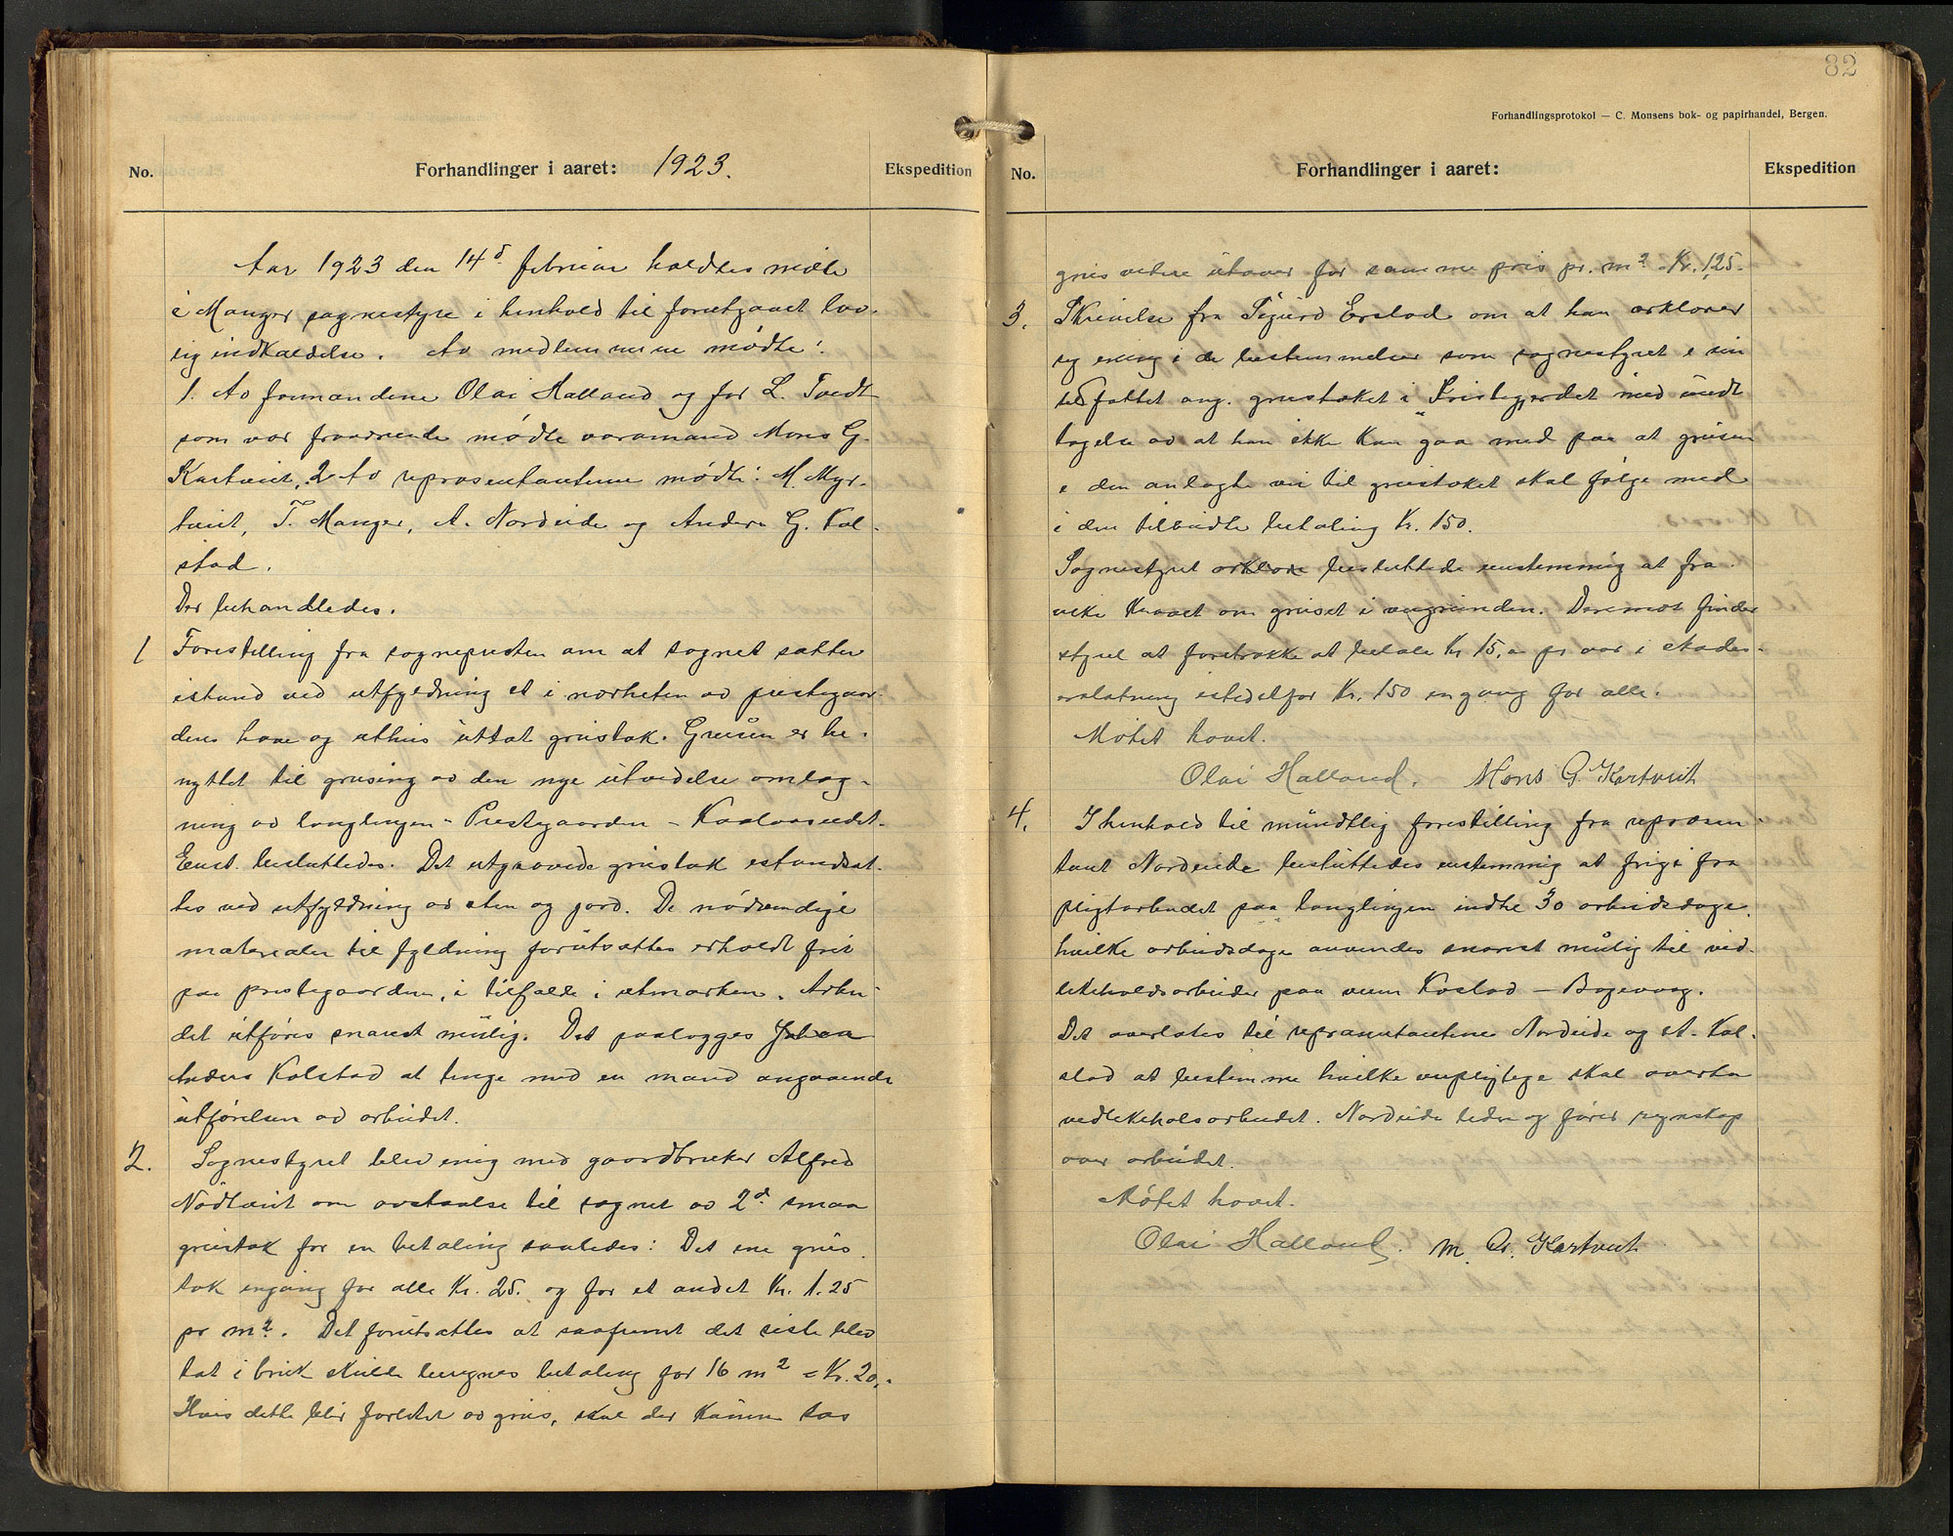 No.
Forhandlinger i aaret: 1923.
Ekspedition
Aar 1923 den 14d februar holdtes møte
i Manger sognestyre i henhold til forutgaaet lov-
lig indkaldelse. Av medlemmene mødte:
1. Av formændene Olai Halland og for L. Tvedt
som var fraværende mødte varamand Mons G.
Kartveit, 2 Av repræsentanterne mødte: M. Myr-
tveit, T. Manger, A. Nordeide og Anders G. Kol-
stad.
Der behandledes.
1 Forestilling fra sognepresten om at sognet sætter
istand ved utfyldning et i nærheten av prestegaar-
dens have og uthus uttat grustak. Grusen er be-
nyttet til grusing av den nye utvidelse omlæg-
ning av longlinjen - Prestegaarden - Kaalaaseidet.
Enst. besluttedes. Det utgravede grustak istandsæt-
tes ved utfyldning av sten og jord. De nødvendige
materialer til fyldning forutsættes erholdt frit
paa prestegaarden, i tilfælde i utmarken. Arbei-
det utføres snarest mulig. Det paalægges
Anders Kolstad at tinge med en mand angaaende
utførelsen av arbeidet.
2. Sognestyret blev enig med gaardbruker Alfred
Nødtveit om avstaaelse til sognet av 2d smaa
grustak for en betaling saaledes: Det ene grus-
tak engang for alle Kr. 25. og for et andet Kr. 1.25
pr m2. Det forutsættes at saafremt det siste blev
tat i bruk skulde beregnes betaling for 16 m2 = Kr. 20,-
Hvis dette blir forlitet av grus, skal der kunne tas
82
Forhandlingsprotokol — C. Monsens bok- og papirhandel, Bergen.
No.
Forhandlinger i aaret:
Ekspedition
grus videre utover for samme pris pr. m2 Kr. 1,25.
3. Skrivelse fra Sigurd Erstad om at han erklærer
sig enig i de bestemmelser som sognestyret i sin
tid fattet ang. grustaket i Pristegjerdet med und-
tagelse av at han ikke kan gaa med paa at grusen
i den anlagte vei til grustaket skal følge med
i den tilbudte betaling Kr. 150.
Sognestyret erklære besluttede enstemmig at fra-
vike kravet om gruset i veigrunden. Derimot finder
styret at foretrække at betale Kr 15,- pr aar i skades-
erstatning istedetfor Kr. 150 engang for alle.
Møtet hævet.
Olai Halland. Mons G. Kartveit
4. I henhold til mundtlig forestilling fra repræsen-
tant Nordeide besluttedes enstemmig at frigi fra
pligtarbeidet paa longlinjen indtil 30 arbeidsdage.
hvilke arbeidsdage anvendes snarest mulig til ved-
likeholdsarbeider paa veien Kolstad — Bøgevaag.
Det overlates til repræsentantene Nordeide og A. Kol-
stad at bestemme hvilke veipligtige skal overta
vedlikeholsarbeidet. Nordeide leder og fører regnskap
over arbeidet.
Møtet hævet.
Olai Halland. M. G. Kartveit